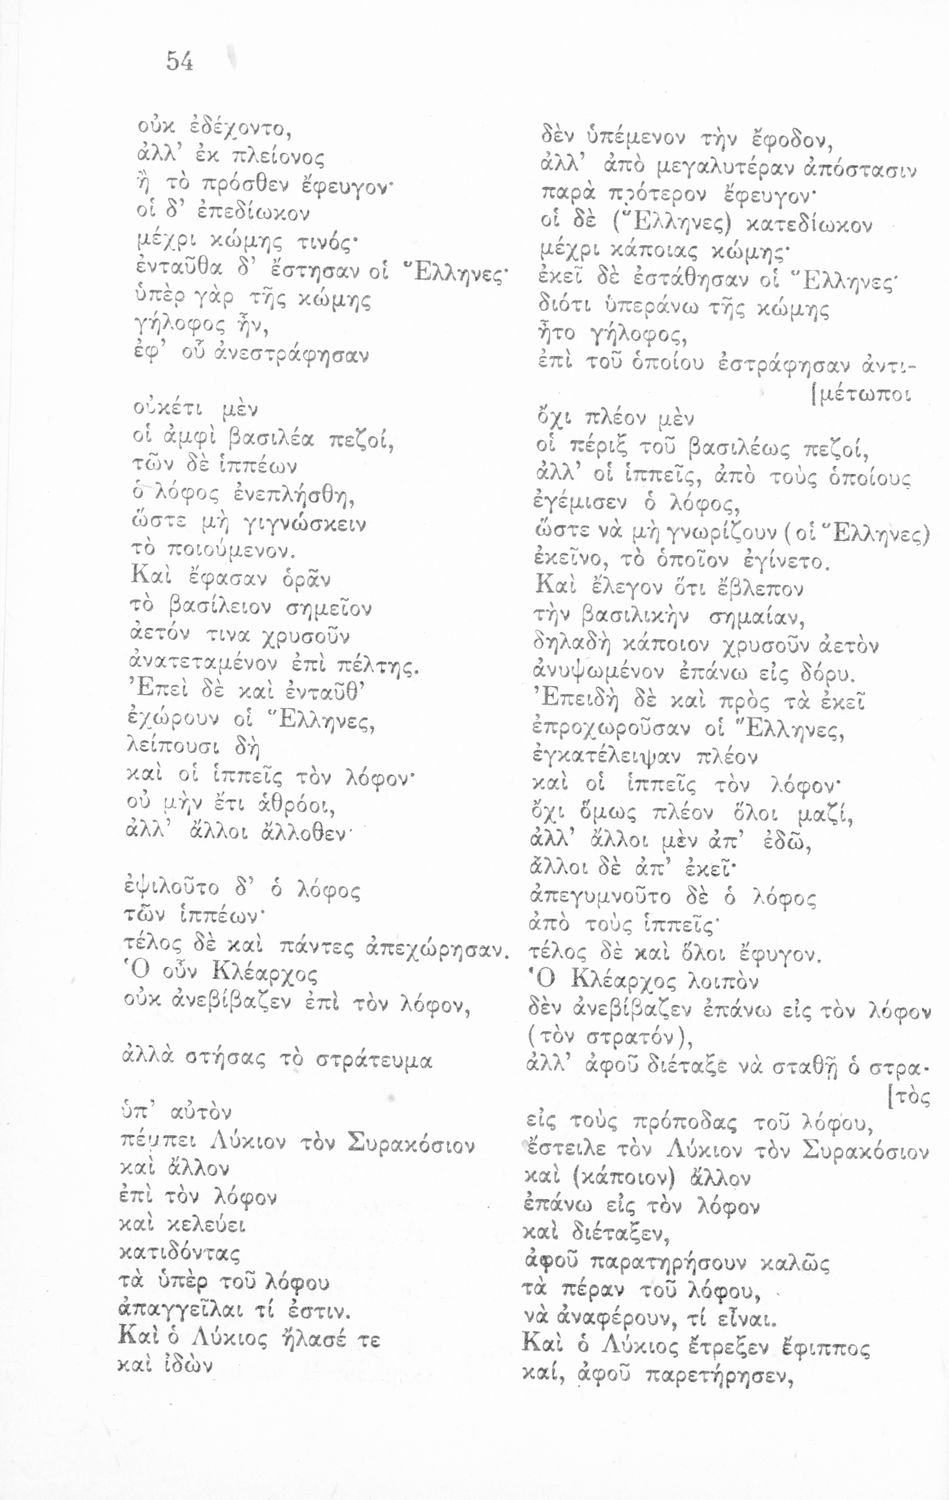 54
οὐκ ἐδέχοντο,
ἀλλ’ ἐκ πλείονος
ἢ τὸ πρόσθεν ἔφευγον·
οἱ δ’ ἐπεδίωκον
μέχρι κώμης τινός·
ἐνταῦθα δ’ ἔστησαν οἱ Ἕλληνες·
ὑπὲρ γὰρ τῆς κώμης
γήλοφος ἦν,
ἐφ’ οὗ ἀνεστράφησαν
οὐκέτι μὲν
οἱ ἀμφὶ βασιλέα πεζοί,
τῶν δὲ ἱππέων
ὁ λόφος ἐνεπλήσθη,
ὥστε μὴ γιγνώσκειν
τὸ ποιούμενον.
Καὶ ἔφασαν ὁρᾶν
τὸ βασίλειον σημεῖον
ἀετόν τινα χρυσοῦν
ἀνατεταμένον ἐπὶ πέλτης.
Ἐπεὶ δὲ καὶ ἐνταῦθ’
ἐχώρουν οἱ Ἕλληνες,
λείπουσι δὴ
καὶ οἱ ἱππεῖς τὸν λόφον·
οὐ μὴν ἔτι ἀθρόοι,
ἀλλ’ ἄλλοι ἄλλοθεν·
ἐψιλοῦτο δ’ ὁ λόφος
τῶν ἱππέων·
τέλος δὲ καὶ πάντες ἀπεχώρησαν.
Ὁ οὖν Κλέαρχος
οὐκ ἀνεβίβαζεν ἐπὶ τὸν λόφον,
ἀλλὰ στήσας τὸ στράτευμα
ὑπ’ αὐτὸν
πέμπει Λύκιον τὸν Συρακόσιον
καὶ ἄλλον
ἐπὶ τὸν λόφον
καὶ κελεύει
κατιδόντας
τὰ ὑπὲρ τοῦ λόφου
ἀπαγγεῖλαι τί ἐστιν.
Καὶ ὁ Λύκιος ἤλασέ τε
καὶ ἰδὼν
δὲν ὑπέμενον τὴν ἔφοδον,
ἀλλ’ ἀπὸ μεγαλυτέραν ἀπόστασιν
παρὰ πρότερον ἔφευγον·
οἱ δὲ (Ἕλληνες) κατεδίωκον
μέχρι κάποιας κώμης·
ἐκεῖ δὲ ἐστάθησαν οἱ Ἕλληνες·
διότι ὑπεράνω τῆς κώμης
ἦτο γήλοφος,
ἐπὶ τοῦ ὁποίου ἐστράφησαν ἀντι-
[μέτωποι
ὄχι πλέον μὲν
οἱ πέριξ τοῦ βασιλέως πεζοί,
ἀλλ’ οἱ ἱππεῖς, ἀπὸ τοὺς ὁποίους
ἐγέμισεν ὁ λόφος,
ὥστε νὰ μὴ γνωρίζουν (οἱ Ἕλληνες)
ἐκεῖνο, τὸ ὁποῖον ἐγίνετο.
Καὶ ἔλεγον ὅτι ἔβλεπον
τὴν βασιλικὴν σημαίαν,
δηλαδὴ κάποιον χρυσοῦν ἀετὸν
ἀνυψωμένον ἐπάνω εἰς δόρυ.
Ἐπειδὴ δὲ καὶ πρὸς τὰ ἐκεῖ
ἐπροχωροῦσαν οἱ Ἕλληνες,
ἐγκατέλειψαν πλέον
καὶ οἱ ἱππεῖς τὸν λόφον·
ὄχι ὅμως πλέον ὅλοι μαζί,
ἀλλ’ ἄλλοι μὲν ἀπ’ ἐδῶ,
ἄλλοι δὲ ἀπ’ ἐκεῖ·
ἀπεγυμνοῦτο δὲ ὁ λόφος
ἀπὸ τοὺς ἱππεῖς·
τέλος δὲ καὶ ὅλοι ἔφυγον.
Ὁ Κλέαρχος λοιπὸν
δὲν ἀνεβίβαζεν ἐπάνω εἰς τὸν λόφον
(τὸν στρατόν),
ἀλλ’ ἀφοῦ διέταξε νὰ σταθῇ ὁ στρα-
[τὸς
εἰς τοὺς πρόποδας τοῦ λόφου,
ἔστειλε τὸν Λύκιον τὸν Συρακόσιον
καὶ (κάποιον) ἄλλον
ἐπάνω εἰς τὸν λόφον
καὶ διέταξεν,
ἀφοῦ παρατηρήσουν καλῶς
τὰ πέραν τοῦ λόφου,
νὰ ἀναφέρουν, τί εἶναι.
Καὶ ὁ Λύκιος ἔτρεξεν ἔφιππος
καί, ἀφοῦ παρετήρησεν,